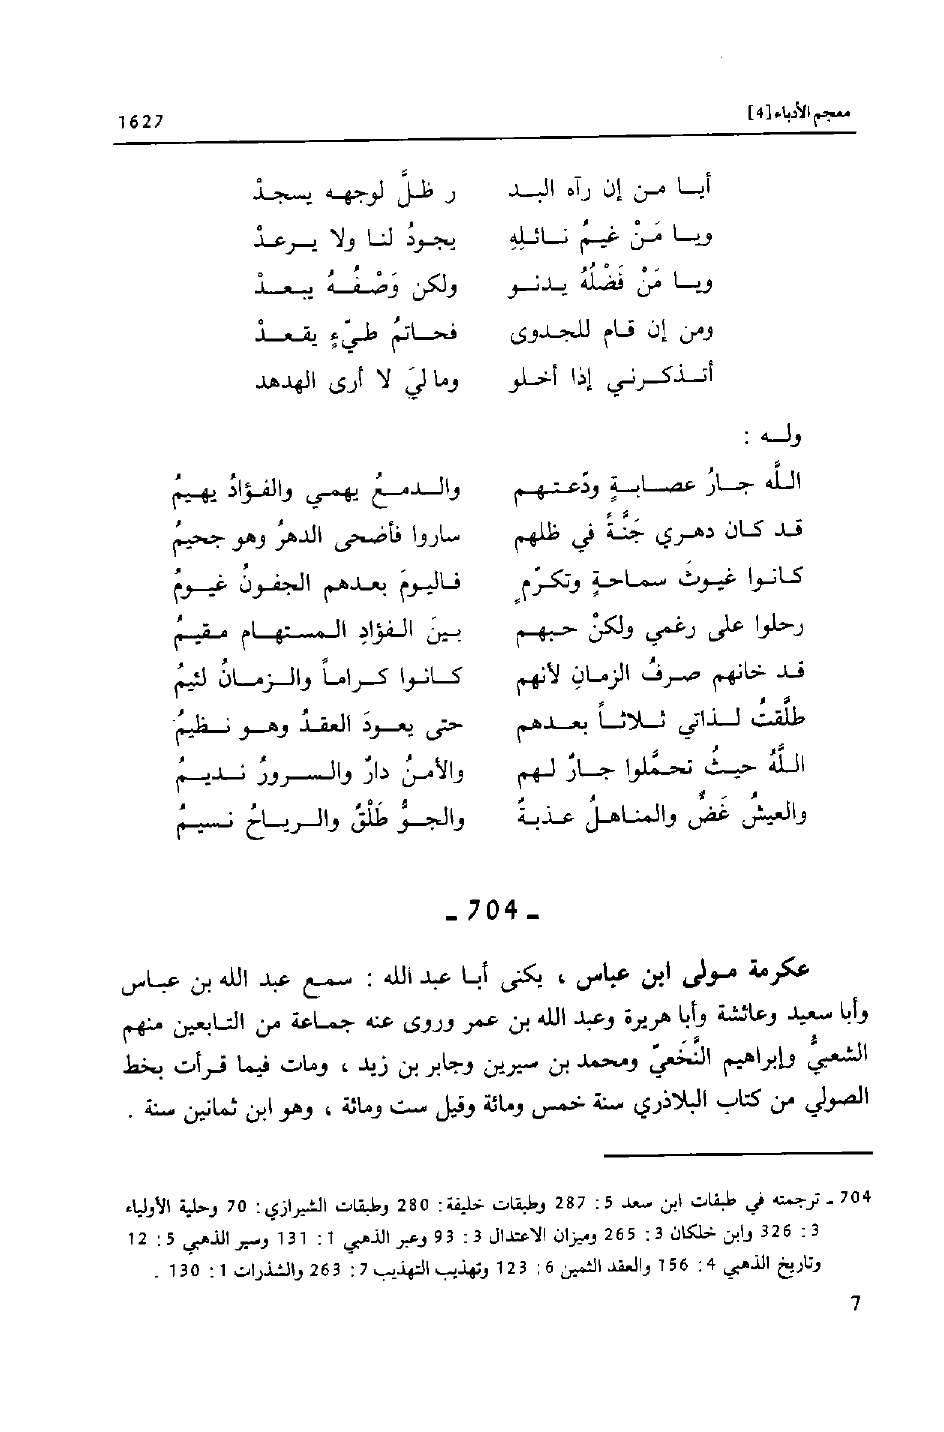 معجم الأدباء [4] 1627
أيـا مـن إن رآه البـد ر ظلَّ لوجهه يسجدْ
ويـا مَنْ غيـمُ نـائلهِ يجودُ لنا ولا يـرعدْ
ويـا مَنْ فَضْلُهُ يدنـو ولكن وَصْفُـهُ يبعـدْ
ومن إن قـام للجدوى فحـاتمُ طيّءٍ يقعـدْ
أتـذكـرني إذا أخلو وما ليَ لا أرى الهدهد
ولـه :
اللَّه جـارُ عصـابـةٍ ودّعتـهـم والـدمـعُ يهمي والفـؤادُ يهيمُ
قـد كـان دهـري جَنَّةً في ظلهم ساروا فأضحى الدهرُ وهو جحيمُ
كانـوا غيـوثَ سمـاحـةٍ وتكـرّمٍ فـاليـومَ بعـدهم الجفـونُ غيـومُ
رحلوا على رغمي ولكنْ حبهـم بـينَ الفؤادِ المستهـام مـقيـمُ
قـد خانهم صـرفُ الزمـانِ لأنهم كـانـوا كـرامـاً والـزمـانُ لئيمُ
طلَّقتُ لـذاتي ثـلاثـاً بعـدهم حتى يعـودَ العقـدُ وهـو نـظيمُ
اللَّهُ حيـثُ تحمَّلوا جـارٌ لـهم والأمـنُ دارٌ والسـرورُ نـديـمُ
والعيشُ غَضٌّ والمناهلُ عـذبـةٌ والجـوُّ طَلْقٌ والـريـاحُ نـسيـمُ
- 704 -
عكرمة مـولى ابن عباس ، يكنى أبـا عبد الله : سمـع عبد الله بن عبـاس
وأبا سعيد وعائشة وأبا هريرة وعبد الله بن عمر وروى عنه جماعة من التابعين منهم
الشعبيُّ وإبراهيم النَّخَعيّ ومحمد بن سيرين وجابر بن زيد ، ومات فيما قـرأت بخط
الصولي من كتاب البلاذري سنة خمس ومائة وقيل ست ومائة ، وهو ابن ثمانين سنة .
704 ـ ترجمته في طبقات ابن سعد 5 : 287 وطبقات خليفة : 280 وطبقات الشيرازي : 70 وحلية الأولياء
3 : 326 وابن خلكان 3 : 265 وميزان الاعتدال 3 : 93 وعبر الذهبي 1 : 131 وسير الذهبي 5 : 12
وتاريخ الذهبي 4 : 156 والعقد الثمين 6 : 123 وتهذيب التهذيب 7 : 263 والشذرات 1 : 130 .
7